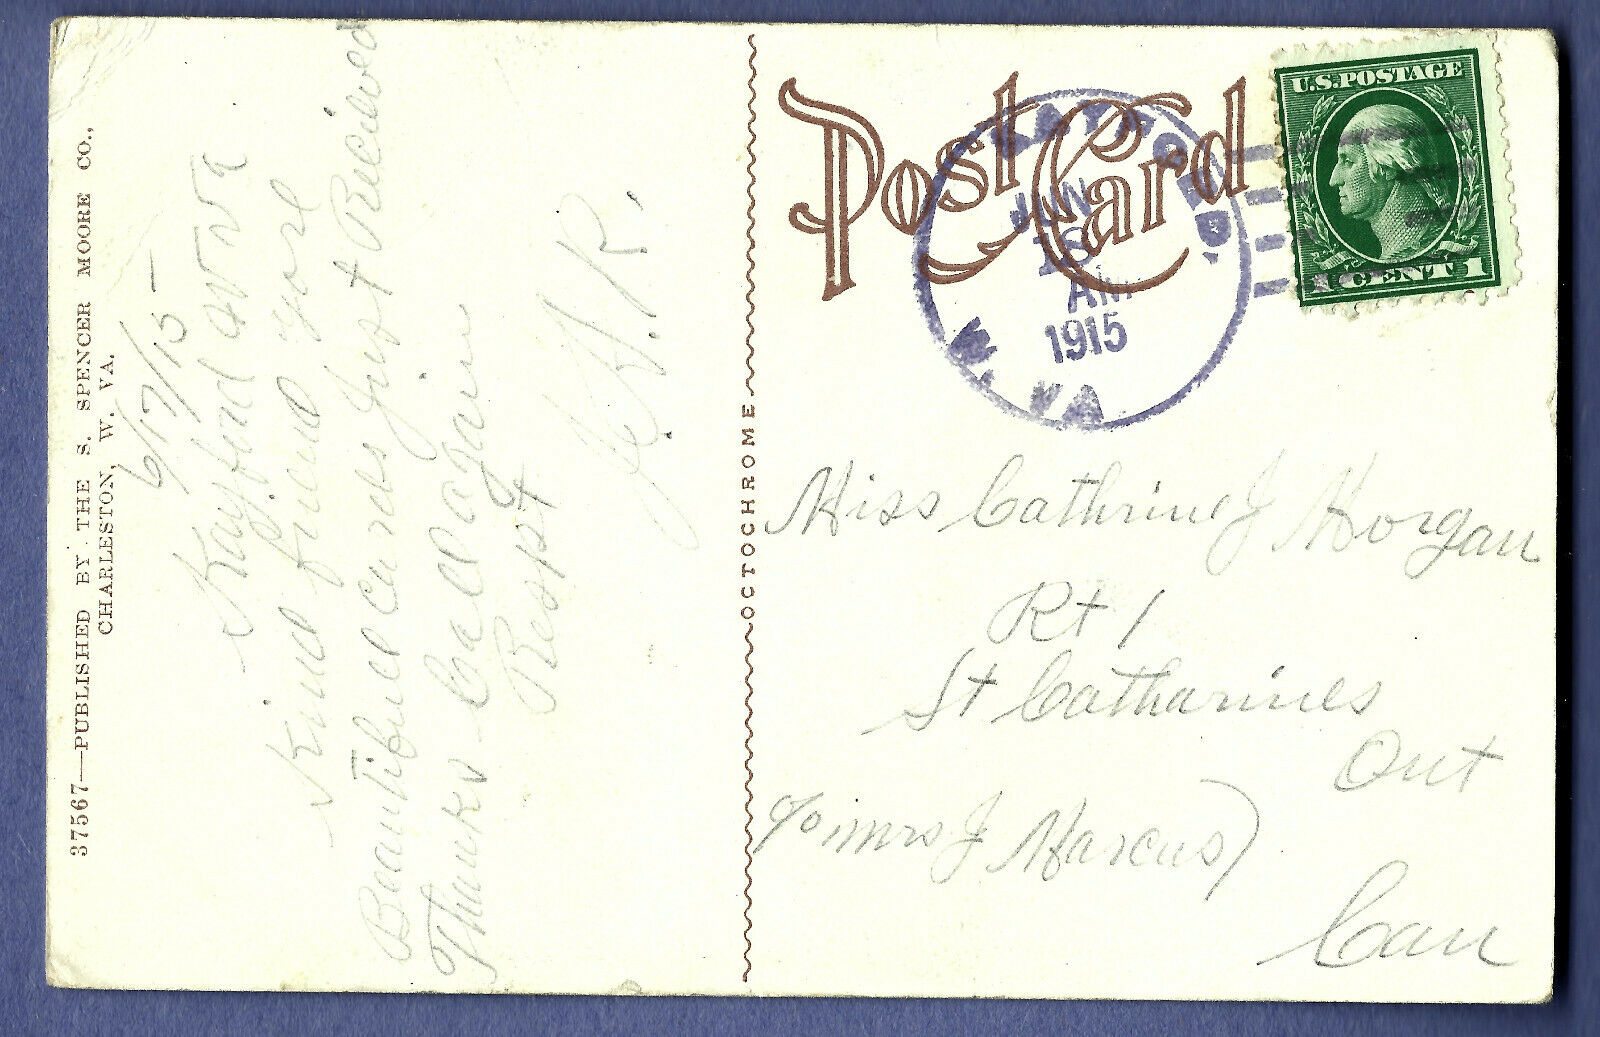 37567—PUBLISHED BY THE S. SPENCER MOORE CO.,
CHARLESTON, W. VA.
6/17/15 -
Kayford W Va
Kind friend your
Beautiful cards Just Recieved
Thanks Call again
Respt
H. R.
OCTOCHROME
Post Card
KAYFORD
JUN
18
AM
1915
W. VA.
U.S. POSTAGE
1 CENT 1
Miss Cathrine J Morgan
Rt 1
St Catharines
Ont
% mrs J Marcus)
Can